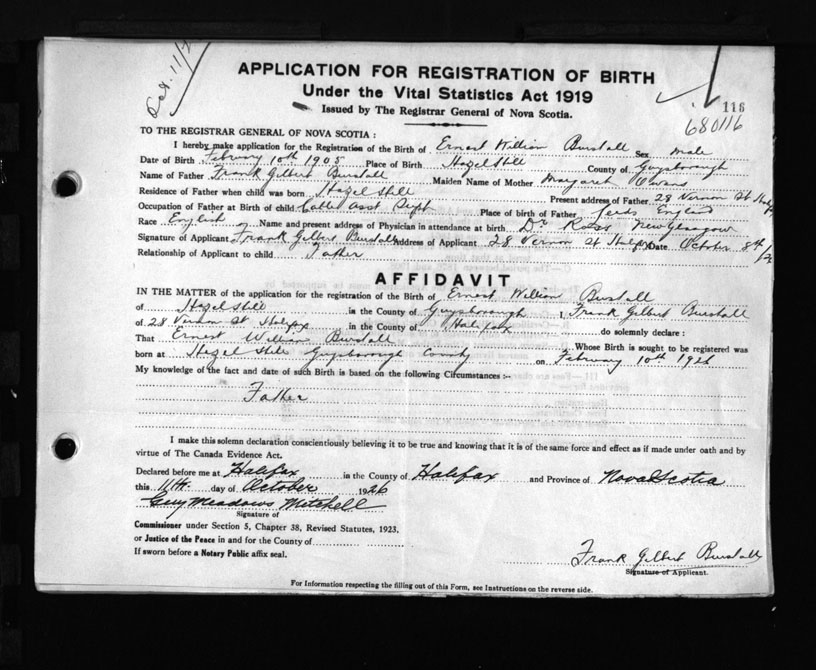 Oct. 11/
APPLICATION FOR REGISTRATION OF BIRTH
Under the Vital Statistics Act 1919
Issued by The Registrar General of Nova Scotia.
116
680116
TO THE REGISTRAR GENERAL OF NOVA SCOTIA :
I hereby make application for the Registration of the Birth of Ernest William Burstall Sex male
Date of Birth February 10th 1905 Place of Birth Hazel Hill County of Guysborough
Name of Father Frank Gilbert Burstall Maiden Name of Mother Margaret Owens
Residence of Father when child was born Hazel Hill Present address of Father 28 Vernon St Halifx
Occupation of Father at Birth of child Cable Asst Supt Place of birth of Father Leeds England
Race English Name and present address of Physician in attendance at birth Dr Ross New Glasgow
Signature of Applicant Frank Gilbert Burstall Address of Applicant 28 Vernon St Halifx Date October 8th
Relationship of Applicant to child Father
AFFIDAVIT
IN THE MATTER of the application for the registration of the Birth of Ernest William Burstall
of Hazel Hill in the County of Guysborough I, Frank Gilbert Burstall
of 28 Vernon St Halifax in the County of Halifax do solemnly declare :
That Ernest William Burstall Whose Birth is sought to be registered was
born at Hazel Hill Guysborough County on February 10th 1926
My knowledge of the fact and date of such Birth is based on the following Circumstances :-
Father
I make this solemn declaration conscientiously believing it to be true and knowing that it is of the same force and effect as if made under oath and by
virtue of The Canada Evidence Act.
Declared before me at Halifax in the County of Halifax and Province of Nova Scotia
this 11th day of October 1926
Guy Meadows Mitchell
Signature of
Commissioner under Section 5, Chapter 38, Revised Statutes, 1923,
or Justice of the Peace in and for the County of
If sworn before a Notary Public affix seal.
Frank Gilbert Burstall
Signature of Applicant.
For Information respecting the filling out of this Form, see Instructions on the reverse side.